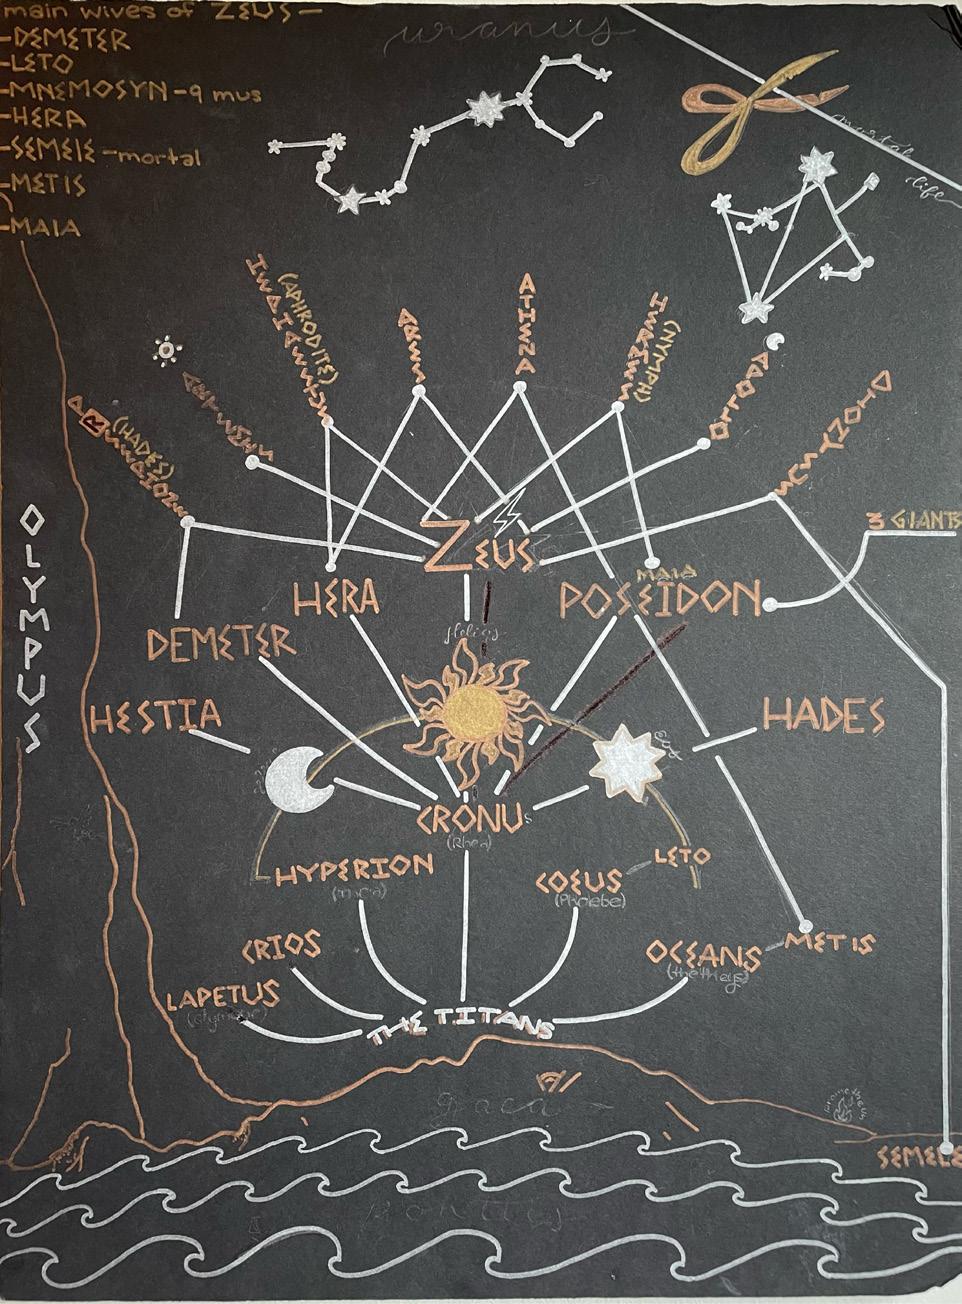 main wives of ZEUS-
-DEMETER
-LETO
-MNEMOSYN-9 mus
-HERA
-SEMELE-mortal
-METIS
-MAIA
uranus
mortal
life
(APHRODITE)
ARES
ATHENA
HERMES
(NYMPH)
APOLLO
(HADES)
ARTEMIS
OLYMPUS
ZEUS
3 GIANTS
HERA
MAIA
POSEIDON
DEMETER
Helios
HESTIA
HADES
CRONUS
(Rhea)
HYPERION
COEUS
LETO
(Phoebe)
CRIOS
OCEANS
METIS
LAPETUS
THE TITANS
gaea
prometheus
SEMELE
Pontus